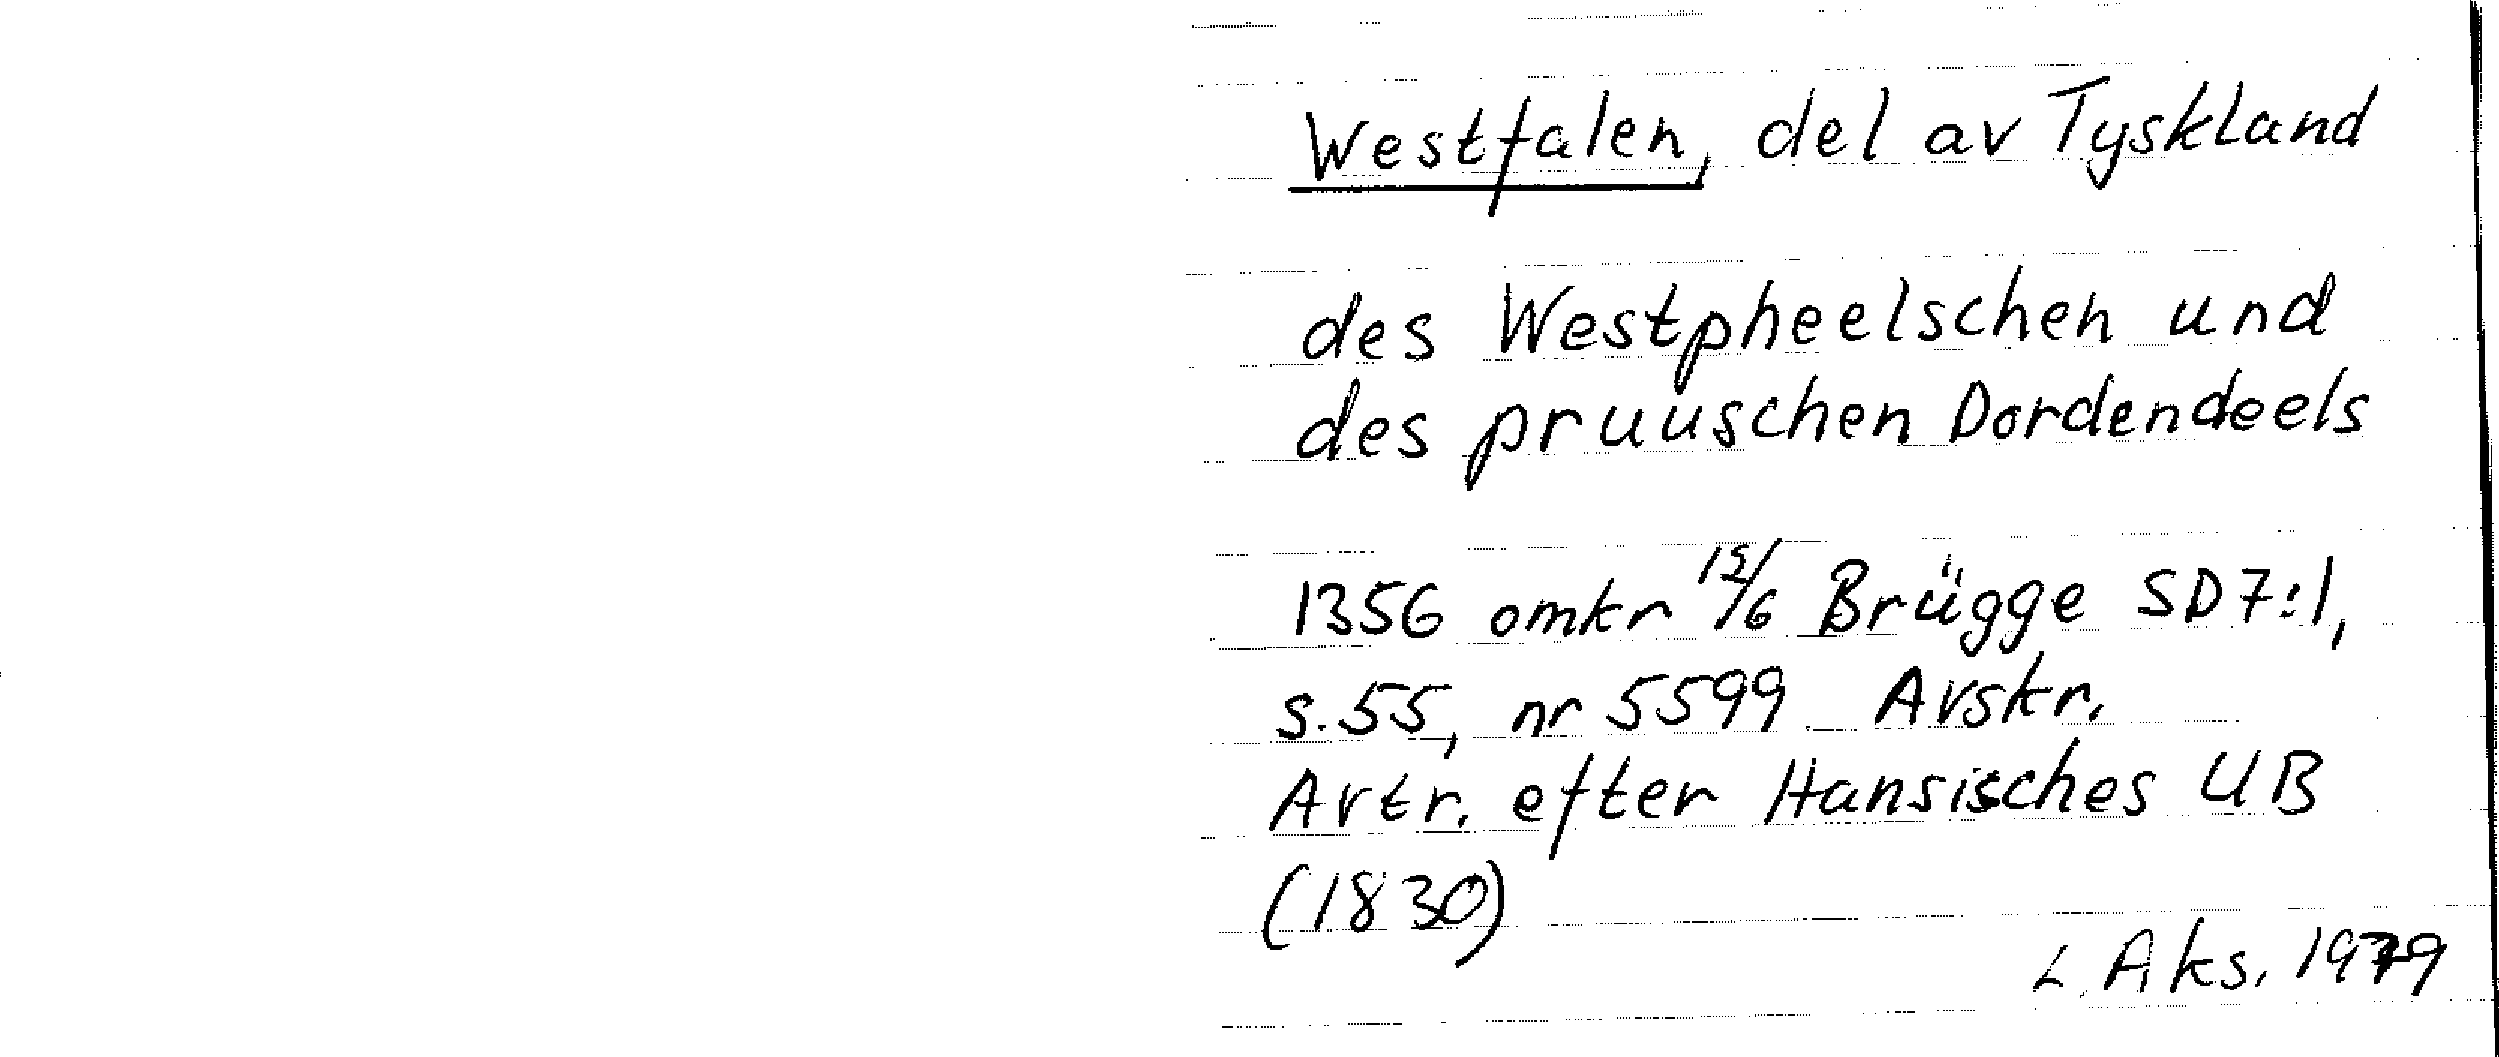 Westfalen, del av Tyskland
des Westpheelschen und
des pruuschen Dordendeels
1356 omkr 15/6 Brügge SD7:1,
s.55, nr 5599 Avskr.
Avtr. efter Hansisches UB
(1830)
L. Aks. 1979